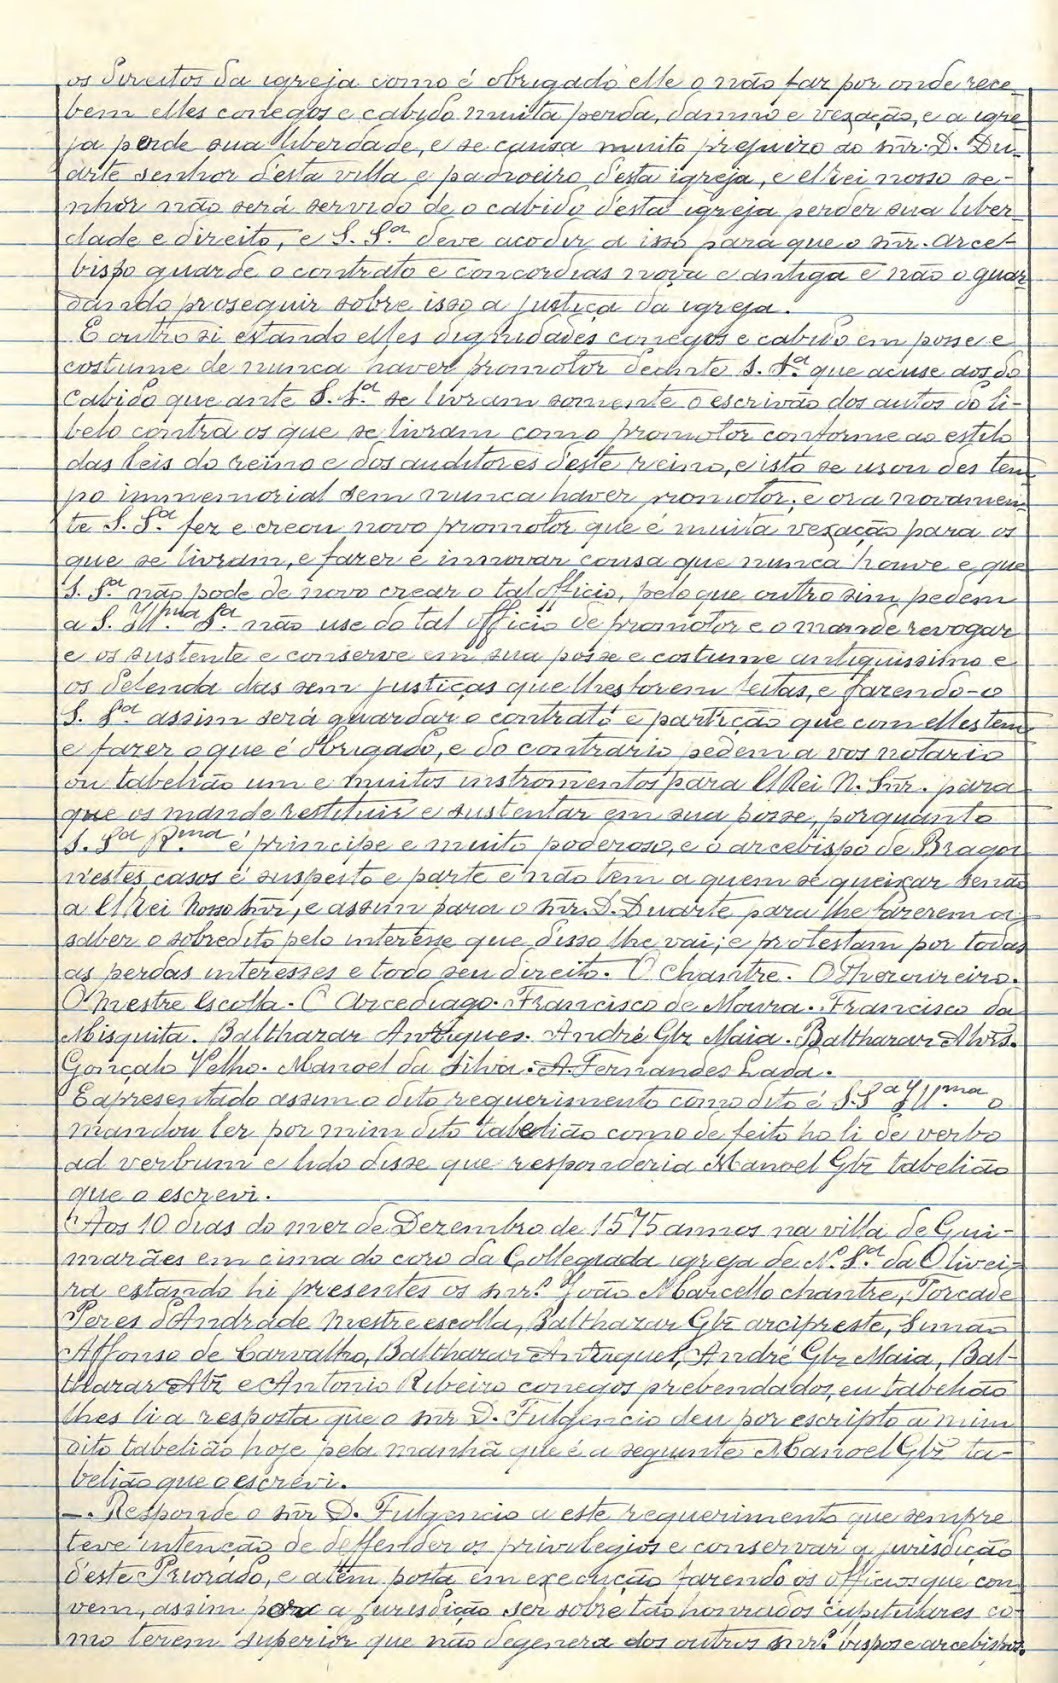 os direitos da igreja como é obrigado elle o não faz por onde rece-
bem elles conegos e cabido muita perda, damno e vexação, e a igre-
ja perde sua liberdade, e se causa muito prejuizo ao snr. D. Du-
arte senhor d'esta villa e padroeiro d'esta igreja, e el rei nosso se-
nhor não será servido de o cabido d'esta igreja perder sua liber-
dade e direito, e S. S.ª deve acodir a isso para que o snr. arce-
bispo guarde o contrato e concordias nova e antiga e não o guar-
dando proseguir sobre isso a justiça da igreja.
E outro si estando elles dignidades conegos e cabido em posse e
costume de nunca haver promotor deante S. S.ª que acuse aos do
Cabido que ante S. S.ª se livram somente o escrivão dos autos do li-
belo contra os que se livram como promotor conforme ao estilo
das leis do reino e dos auditores d'este reino, e isto se usou des tem
po immemorial sem nunca haver promotor; e ora novamen-
te S. S.ª fez e creou novo promotor que é muita vexação para os
que se livram, e fazer e innovar cousa que nunca houve e que
S. S.ª não pode de novo crear o tal officio, pelo que outro sim pedem
a S. Ill.ma S.ª não use do tal officio de promotor e o mande revogar
e os sustente e conserve em sua posse e costume antiquissimo e
os defenda das sem justiças que lhes forem feitas, e fazendo-o
S. S.ª assim será guardar o contrato e partição que com elles tem
e fazer o que é obrigado, e do contrario pedem a vos notario
ou tabelião um e muitos instromentos para El Rei N. Snr. para
que os mande restituir e sustentar em sua posse, porquanto
S. S.ª R.ma é principe e muito poderoso, e o arcebispo de Braga
n'estes casos é suspeito e parte e não tem a quem se queixar senão
a El Rei Nosso Snr, e assim para o snr. D. Duarte para lhe fazerem a
saber o sobredito pelo interesse que disso lhe vai; e protestam por todas
as perdas interesses e todo seu direito. O Chantre. O Thezoureiro.
O Mestre Escolla. O Arcediago. Francisco de Moura. Francisco da
Misquita. Balthazar Antrques. André Glz Maia. Balthazar Alvrs.
Gonçalo Velho. Manoel da Silva. A. Fernandes Lada.
E apresentado assim o dito requerimento como dito é S. S.ª Ill.ma o
mandou ler por mim dito tabelião como de feito ho li de verbo
ad verbum e lido disse que responderia Manoel Glz tabelião
que o escrevi.
Aos 10 dias do mez de Dezembro de 1575 annos na villa de Gui-
marães em cima do coro da Collegiada igreja de N.ª S.ª da Olivei-
ra estando hi presentes os snr.s João Marcello chantre, Torcade
Peres d'Andrade Mestre escolla, Balthazar Glz arcipreste, Simão
Affonso de Carvalho, Balthazar Antrquel, André Glz Maia, Bal-
thazar Alz e Antonio Ribeiro conegos prebendados, eu tabelião
lhes li a resposta que o snr D. Fulgencio deu por escripto a mim
dito tabelião hoje pela manhã que é a seguinte Manoel Glz ta-
belião que o escrevi.
—. Responde o snr D. Fulgencio a este requerimento que sempre
teve intenção de deffender os privilegios e conservar a jurisdição
d'este Priorado, e a tem posta em execução fazendo os officios que con
vem, assim para a jurisdição ser sobre tão honrados capitulares co-
mo terem superior que não degenera dos outros snr.s bispos e arcebispos.